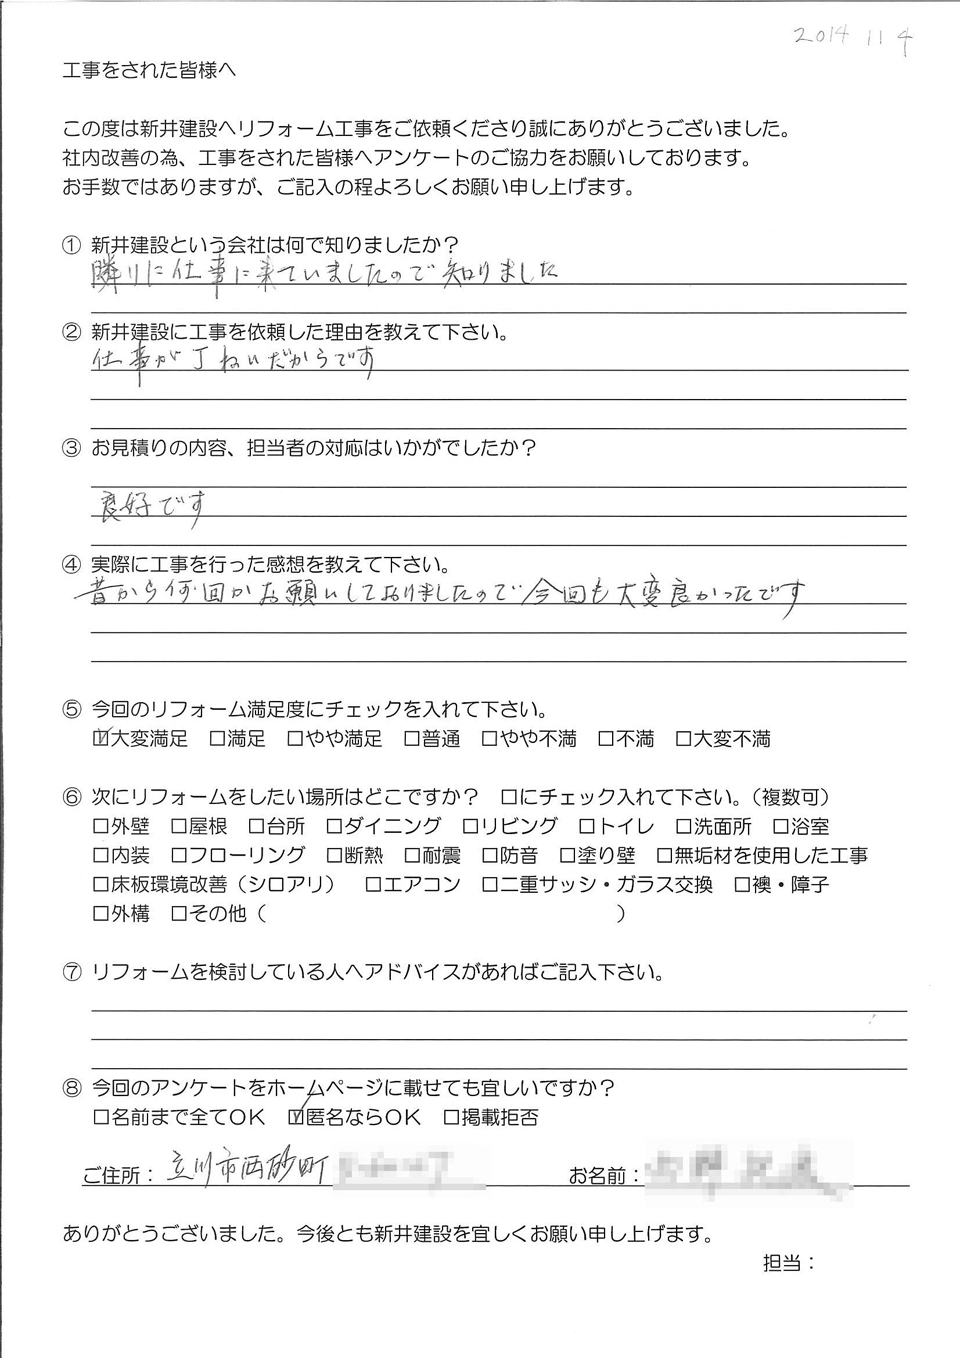 2014 11 4
工事をされた皆様へ
この度は新井建設へリフォーム工事をご依頼くださり誠にありがとうございました。
社内改善の為、工事をされた皆様へアンケートのご協力をお願いしております。
お手数ではありますが、ご記入の程よろしくお願い申し上げます。
① 新井建設という会社は何で知りましたか？
隣りに仕事に来ていましたので知りました
② 新井建設に工事を依頼した理由を教えて下さい。
仕事が丁ねいだからです
③ お見積りの内容、担当者の対応はいかがでしたか？
良好です
④ 実際に工事を行った感想を教えて下さい。
昔から何回かお願いしておりましたので今回も大変良かったです
⑤ 今回のリフォーム満足度にチェックを入れて下さい。
☑大変満足 □満足 □やや満足 □普通 □やや不満 □不満 □大変不満
⑥ 次にリフォームをしたい場所はどこですか？ □にチェック入れて下さい。（複数可）
□外壁 □屋根 □台所 □ダイニング □リビング □トイレ □洗面所 □浴室
□内装 □フローリング □断熱 □耐震 □防音 □塗り壁 □無垢材を使用した工事
□床板環境改善（シロアリ） □エアコン □二重サッシ・ガラス交換 □襖・障子
□外構 □その他（ ）
⑦ リフォームを検討している人へアドバイスがあればご記入下さい。
⑧ 今回のアンケートをホームページに載せても宜しいですか？
□名前まで全てOK ☑匿名ならOK □掲載拒否
ご住所：立川市西砂町 お名前：
ありがとうございました。今後とも新井建設を宜しくお願い申し上げます。
担当：